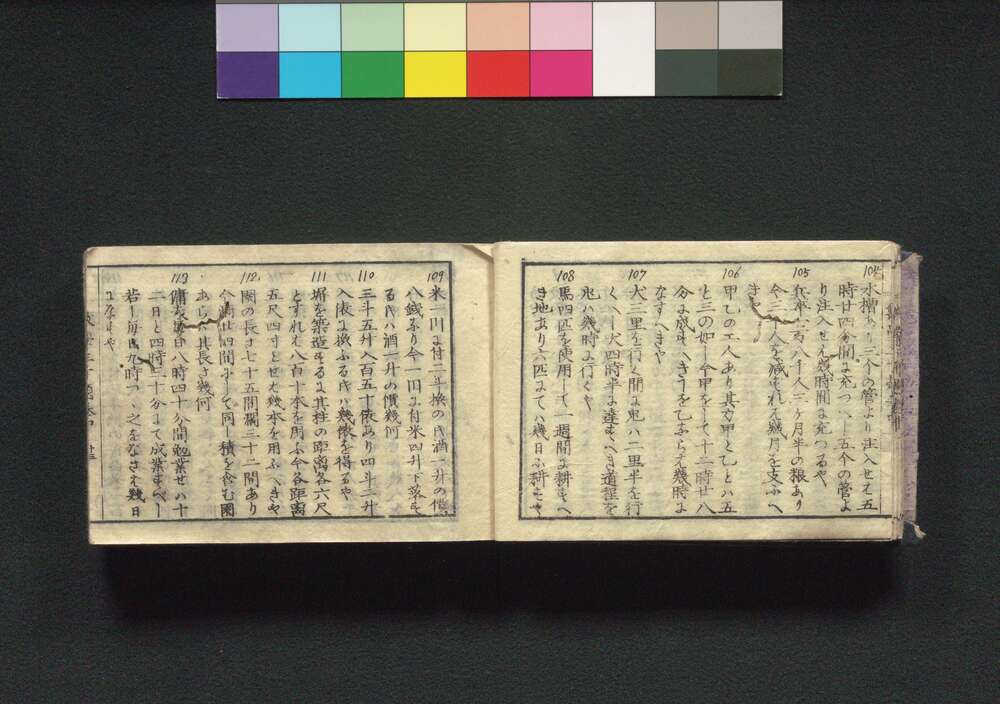 104
水槽あり三个の管より注入せば五
時廿四分間に充つべし五个の管よ
り注入せば幾時間に充つるや
105
兵卒二万八千人三ケ月半の粮あり
今三千人を減ずれば幾月を支ふべ
きや
106
甲乙の工人あり其力甲と乙とハ五
と三の如し今甲をして十二時廿八
分に成すべきを乙ならば幾時に
なすべきや
107
犬三里を行く間に兎ハ二里半を行
くべし犬四時半に達すべき道程を
兎ハ幾時に行くや
108
馬四匹を使用して一週間に耕すべ
き地あり六匹にてハ幾日に耕すや
109
米一円に付二斗換の時酒一升の價
八銭なり今一円に付米四升下落す
る時ハ酒一升の價幾何
110
三斗五升入百五十俵あり四斗二升
入俵に換ふる時ハ幾俵を得るや
111
堀を築造するに其柱の距離各六尺
とすれば八百十本を用ふ今各距離
五尺四寸とせば幾本を用ふべきや
112
園の長さ七十五間濶三十二間あり
今濶廿四間にして同し積を含む園
あらば其長さ幾何
113
傭夫毎日八時四十分間勉業せハ十
二日と四時三十分にて成業すべし
若し毎日九時づつ之をなさば幾日
になるや